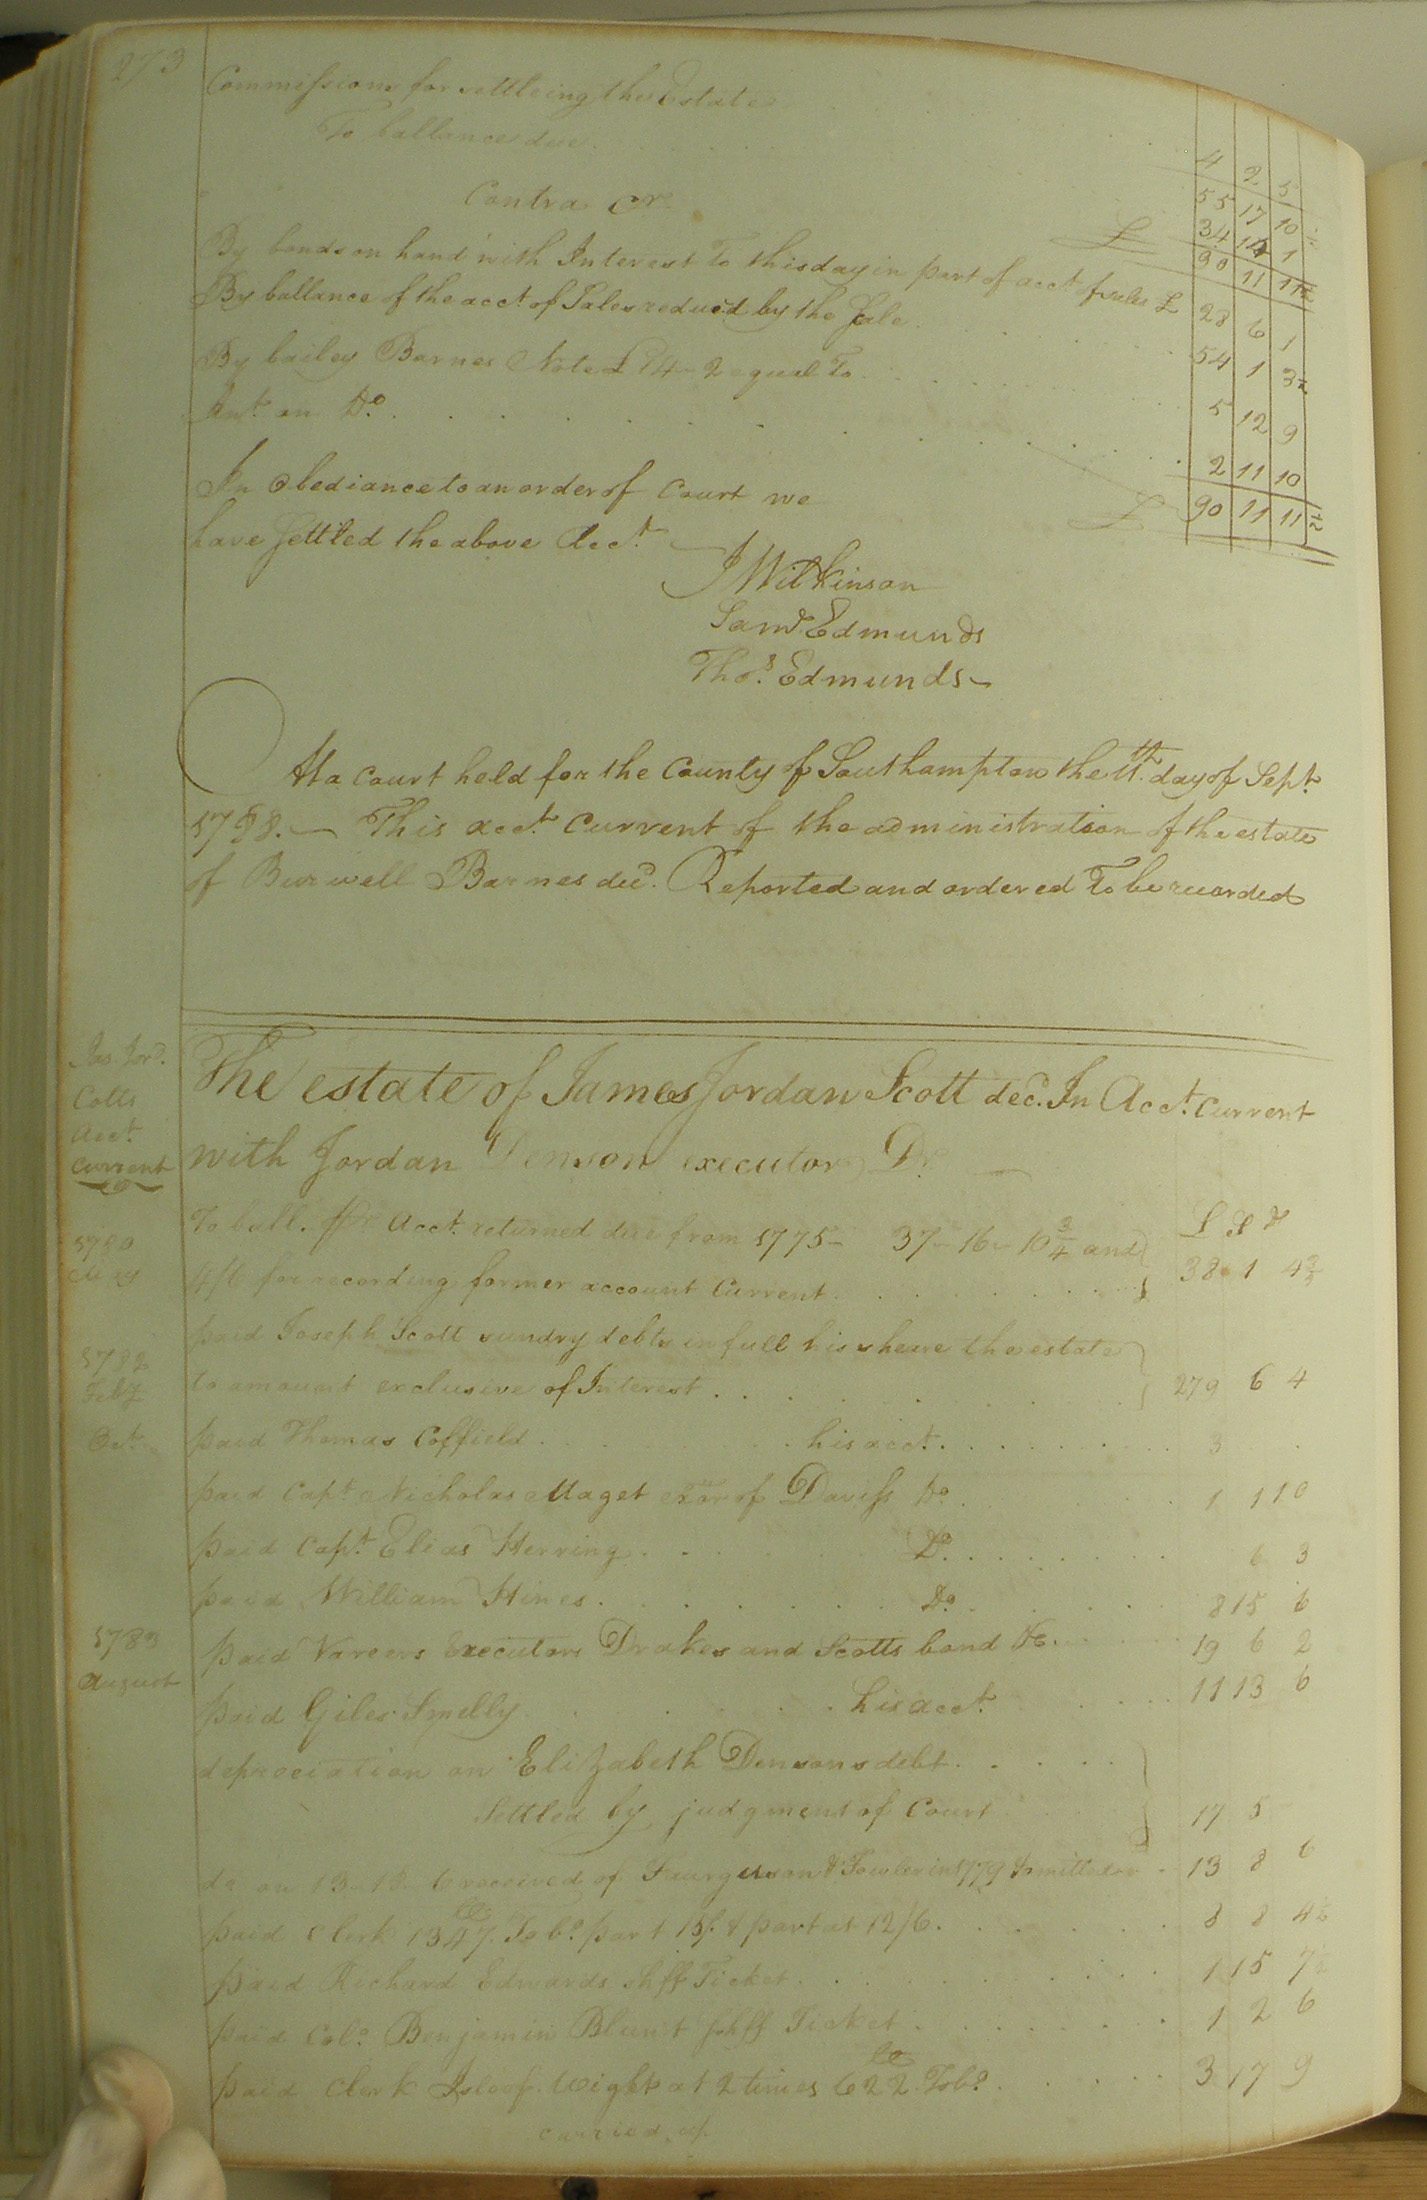 273
Commissions for settleing the Estate
To ballance due
4 2 5
55 17 10
Contra Cr.
34 14 1
£ 90 11 11½
By bonds on hand with Interest To this day in part of acct. of sales £ 28 6 1
By ballance of the acct. of Sales reduced by the Scale 54 1 3½
By bailey Barnes Note £14-2 equal To 5 12 9
Int. on Do. 2 11 10
£ 90 11 11½
In obediance to an order of Court we
have settled the above Acct.
J Wilkinson
Saml. Edmunds
Thos. Edmunds
At a Court held for the County of Southampton the 11th. day of Sept.
1788. This acct. Current of the administration of the estate
of Burwell Barnes decd. Reported and ordered To be recorded
Jas. Jord.
Cotts
Acct.
Current
The estate of James Jordan Scott decd. In Acct. Current
with Jordan Denson executor Dr.
£ S d
To ball. pr Acct. returned due from 1775- 37-16-10¾ and
4/6 for recording former account Current 38 1 4¾
1782
Feby
paid Joseph Scott sundry debts in full his sheare the estate
to amount exclusive of Interest 279 6 4
Oct.
paid Thomas Coffield his acct. 3
paid Capt. Nicholas Maget exor of Daviss Do. 1 1 10
paid Capt. Elias Herring Do. 6 3
paid William Hines Do. 8 15 6
1783
August
paid Vareers Executors Drakes and Scotts bond &c. 19 6 2
paid Giles Smelly his acct. 11 13 6
depreciation on Elizabeth Densons debt
Settled by judgment of Court 17 5
do on 13-18-6 received of Faurguson & Fowler in 1779 13 8 6
paid Clerk 1347 lb. Tobo. part 15/. & part at 12/6. 8 8 4½
paid Richard Edwards shff Ticket 1 15 7½
paid Colo. Benjamin Blunt shff Ticket 1 2 6
paid Clerk Isle of Wight at 2 times 622 lb Tobo. 3 17 9
carried up